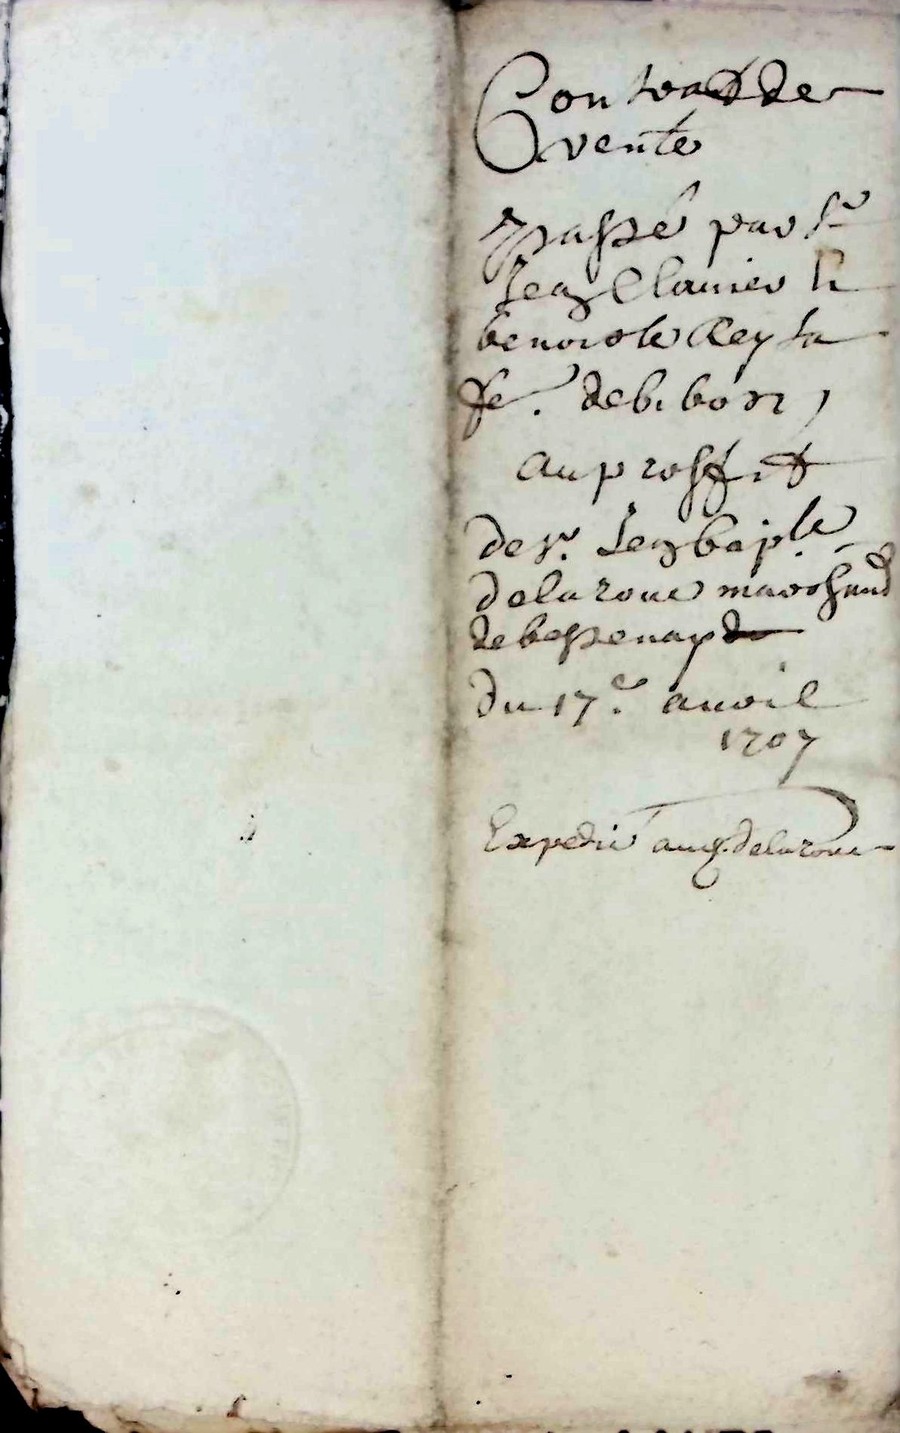 Contract de
vente
passé par Sr
Jean Clavier &
benoiste Rey sa
fe. de bibost
au proffit
de Sr. Jean bapte
delaroue marchand
de bessenay
du 17e. auril
1707
Expedié aud. delaroue